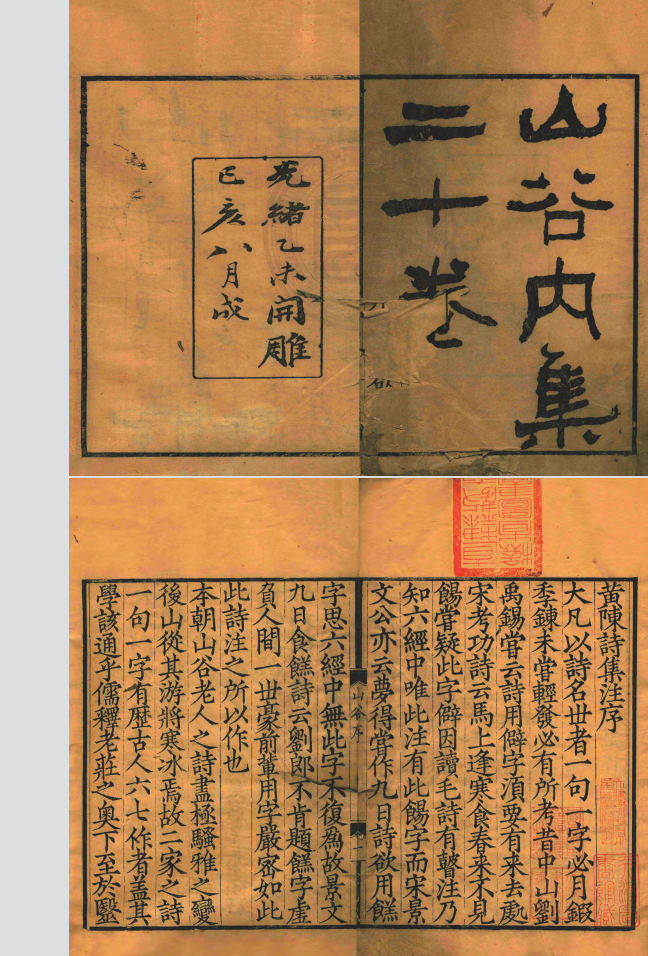 山谷内集
二十卷
光緒乙未開雕
己亥八月成
黄陳詩集注序
大凡以詩名世者一句一字必月鍜
季鍊未甞輕發必有所考昔中山劉
禹錫甞云詩用僻字湏要有来去處
宋考功詩云馬上逢寒食春来不見
餳甞疑此字僻因讀毛詩有瞽注乃
知六經中唯此注有此餳字而宋景
文公亦云夢得甞作九日詩欲用餻
字思六經中無此字不復為故景文
九日食餻詩云劉郎不肯題餻字虛
負人間一世豪前輩用字嚴密如此
此詩注之所以作也
本朝山谷老人之詩盡極騷雅之變
後山從其游將寒冰焉故二家之詩
一句一字有歷古人六七作者盖其
學該通乎儒釋老莊之奥下至於毉
山谷序
一